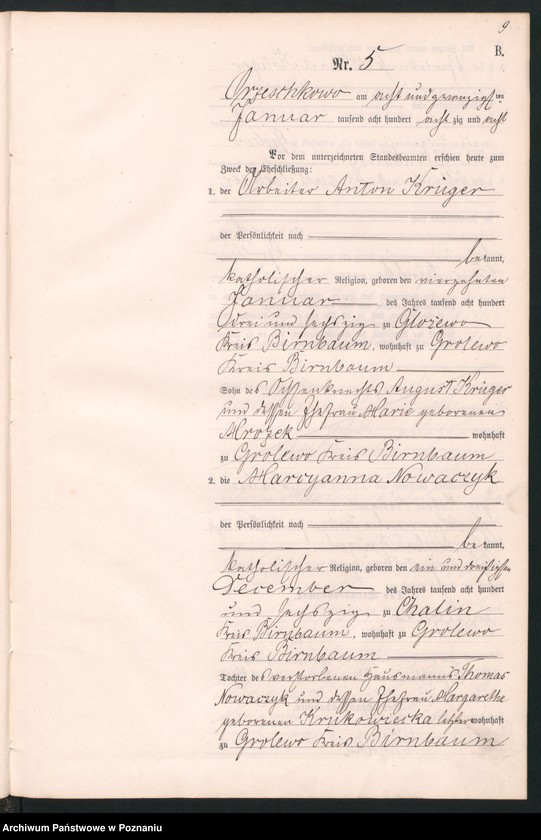 9
B.
Nr. 5
Orzeschkowo am acht und zwanzigsten
Januar tausend acht hundert acht zig und acht
Vor dem unterzeichneten Standesbeamten erschien heute zum
Zweck der Eheschließung:
1. der Arbeiter Anton Krüger
der Persönlichkeit nach
bekannt,
katholischer Religion, geboren den vierzehnten
Januar des Jahres tausend acht hundert
drei und sechszig zu Glozewo
Kreis Birnbaum, wohnhaft zu Grolewo
Kreis Birnbaum
Sohn des Ochsenknechts August Krüger
und dessen Ehefrau Marie geborenen
Mrozek wohnhaft
zu Grolewo Kreis Birnbaum
2. die Marcyanna Nowaczyk
der Persönlichkeit nach
bekannt,
katholischer Religion, geboren den ein und dreißigsten
December des Jahres tausend acht hundert
und sechszig zu Chalin
Kreis Birnbaum, wohnhaft zu Grolewo
Kreis Birnbaum
Tochter des verstorbenen Hausmanns Thomas
Nowaczyk und dessen Ehefrau Margarethe
geborenen Krukowieska letzter wohnhaft
zu Grolewo Kreis Birnbaum
Archiwum Państwowe w Poznaniu